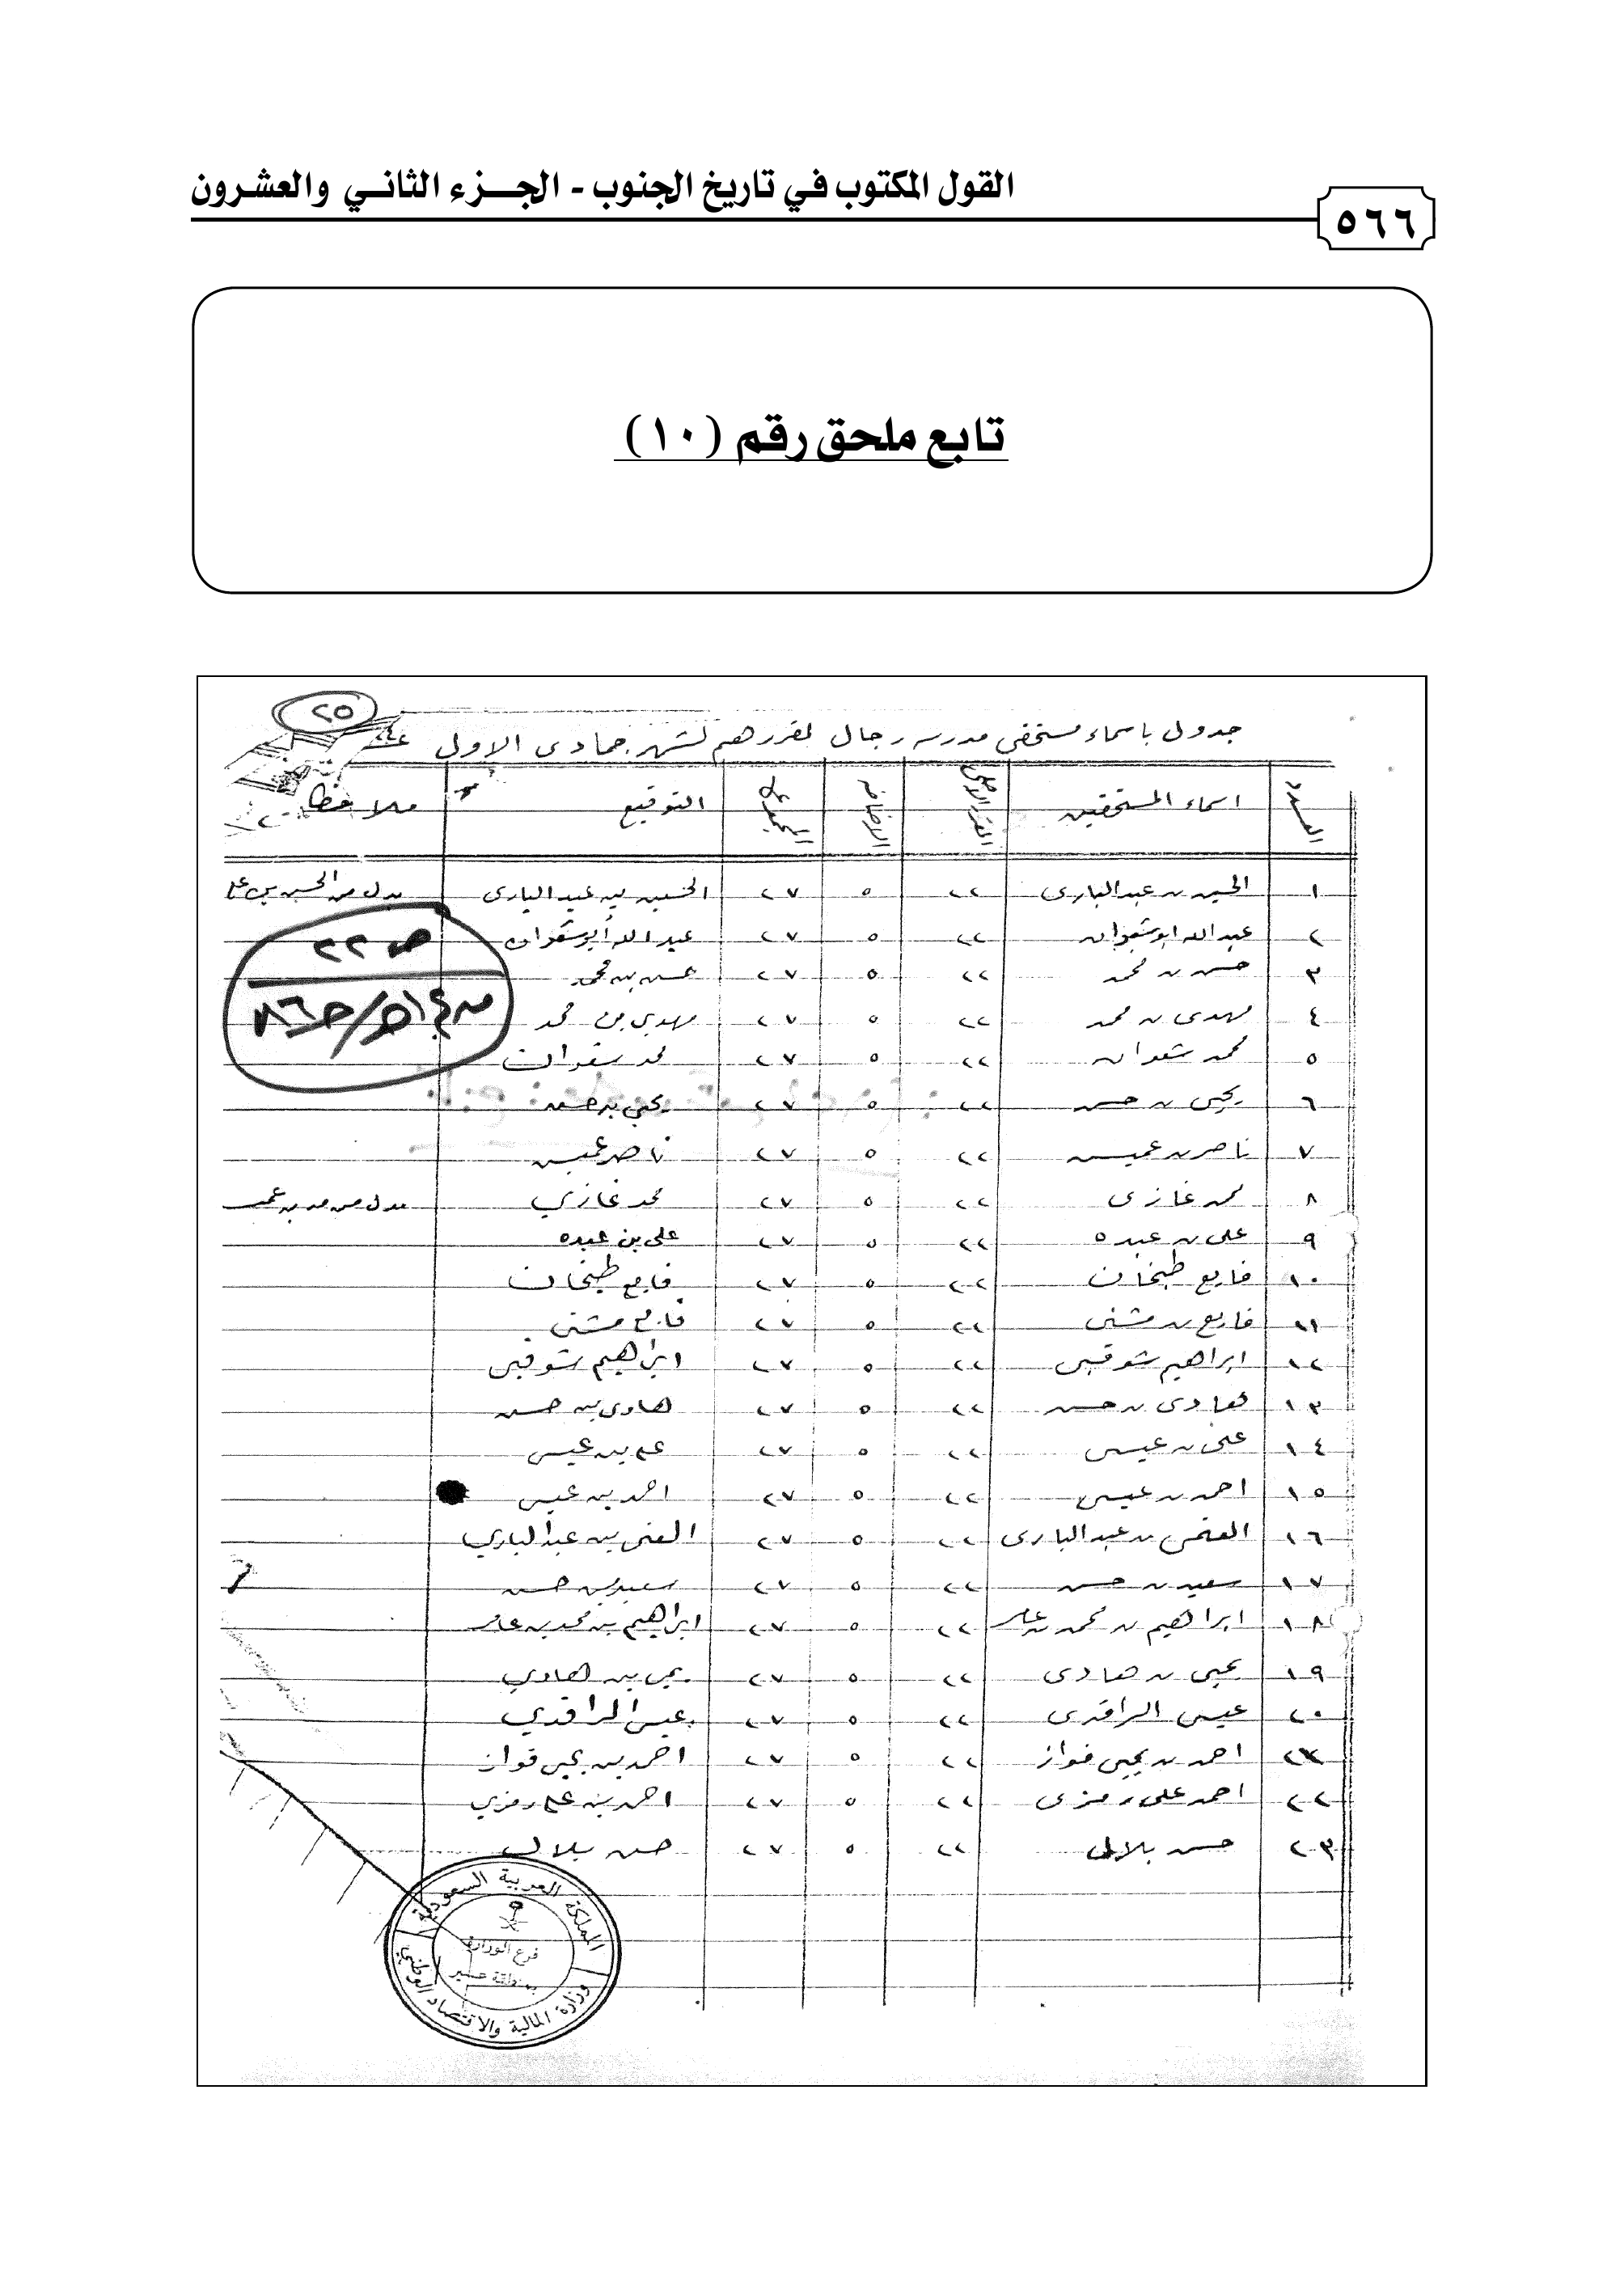 القول المكتوب في تاريخ الجنوب - الجـــزء الثانـي والعشـرون
٥٦٦
تابع ملحق رقم (١٠)
٢٥
جدول باسماء مستحقي مدرسه رجال لمقررهم لشهر جمادى الاولى
العدد اسماء المستحقين المقرر الاصلي الاضافه الجملة التوقيع ملاحظات
١ الحسين بن عبد البارى ٢٢ ٥ ٢٧ الحسين بن عبد البارى بدل من الحسين بن علي
٢ عبد الله ابو شعوان ٢٢ ٥ ٢٧ عبد الله أبو شعوان
ص ٢٢
٣ حسن بن محمد ٢٢ ٥ ٢٧ حسن بن محمد
٤ مهدى بن محمد ٢٢ ٥ ٢٧ مهدي بن محمد
٥ محمد شعوان ٢٢ ٥ ٢٧ محمد شعوان
٦ يحيى بن حسن ٢٢ ٥ ٢٧ يحيى بن حسن
٧ ناصر بن عميس ٢٢ ٥ ٢٧ ناصر عميس
٨ محمد غازى ٢٢ ٥ ٢٧ محمد غازي بدل من
٩ على بن عبده ٢٢ ٥ ٢٧ علي بن عبده
١٠ فايع طبخان ٢٢ ٥ ٢٧ فايع طبخان
١١ فايع بن مشنى ٢٢ ٥ ٢٧ فايع مشنى
١٢ ابراهيم شوقبى ٢٢ ٥ ٢٧ ابراهيم شوقبي
١٣ هادى بن حسن ٢٢ ٥ ٢٧ هادي بن حسن
١٤ على بن عيسى ٢٢ ٥ ٢٧ علي بن عيسى
١٥ احمد بن عيسى ٢٢ ٥ ٢٧ احمد بن عيسى
١٦ بن عبد البارى ٢٢ ٥ ٢٧ بن عبد الباري
١٧ سعيد بن حسن ٢٢ ٥ ٢٧ سعيد بن حسن
١٨ ابراهيم بن محمد بن عامر ٢٢ ٥ ٢٧ ابراهيم بن محمد بن عامر
١٩ يحيى بن هادى ٢٢ ٥ ٢٧ يحيى بن هادي
٢٠ عيسى الراقدى ٢٢ ٥ ٢٧ عيسى الراقدي
٢١ احمد بن يحيى فواز ٢٢ ٥ ٢٧ احمد بن يحيى فواز
٢٢ احمد على رمزى ٢٢ ٥ ٢٧ احمد بن علي رمزي
٢٣ حسن بلال ٢٢ ٥ ٢٧ حسن بلال
المملكة العربية السعودية
فرع الوزارة
بمنطقة عسير
وزارة المالية والاقتصاد الوطني